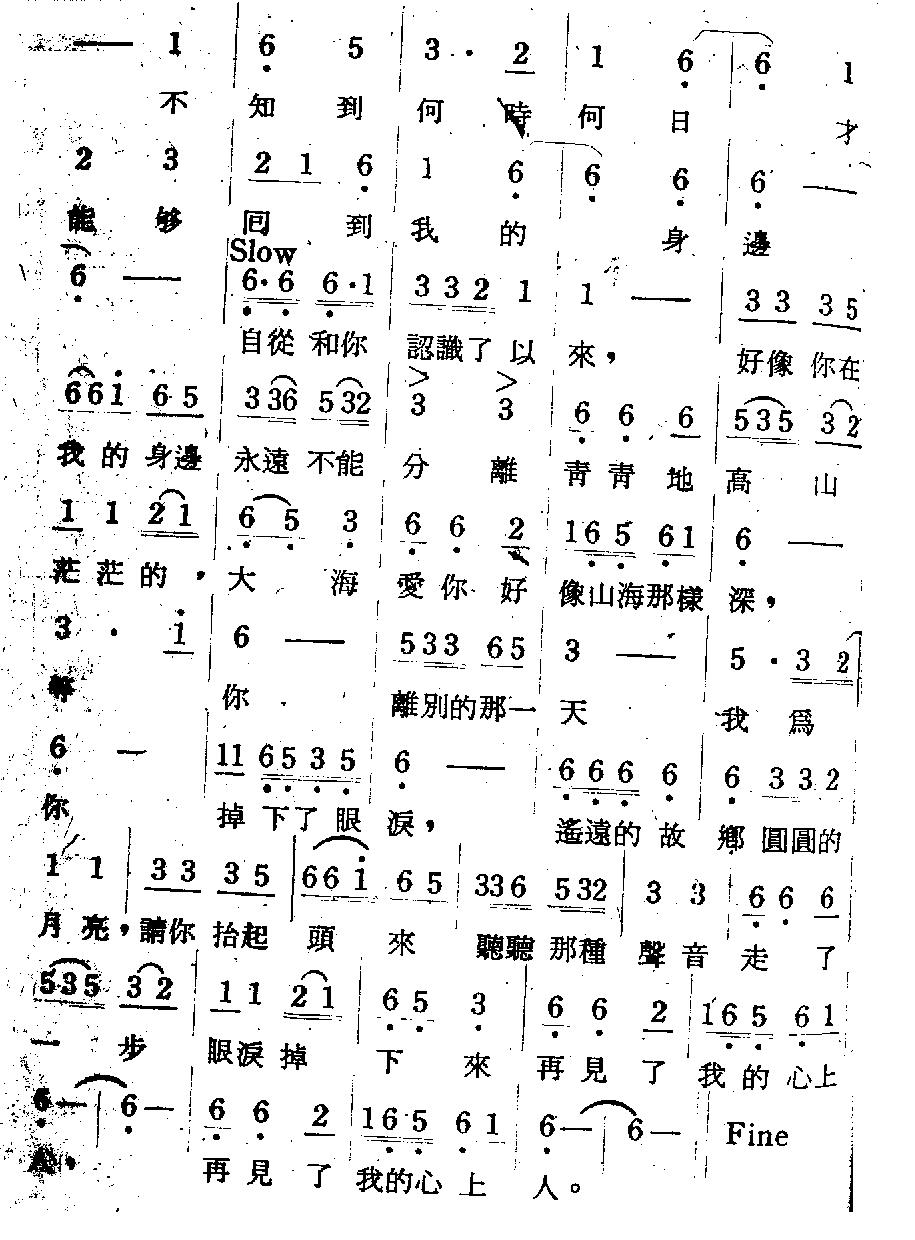 — 1 | 6 5 | 3 · 2 | 1 6 | 6 1
不 知 到 何 時 何 日 才
2 3 | 2 1 6 | 1 6 | 6 6 | 6 —
能 够 囘 到 我 的 身 邊
Slow
6 — | 6·6 6·1 | 3 3 2 1 | 1 — | 3 3 3 5
自從 和你 認識了 以 來， 好像 你在
6 6 i 6 5 | 3 3 6 5 3 2 | 3 3 | 6 6 6 | 5 3 5 3 2
我 的 身邊 永遠 不能 分 離 青 青 地 高 山
1 1 2 1 | 6 5 3 | 6 6 2 | 1 6 5 6 1 | 6 —
茫 茫 的， 大 海 愛 你 好 像山海那樣 深，
3 · i | 6 — | 5 3 3 6 5 | 3 — | 5 · 3 2
等 你 離別的那一 天 我 爲
6 — | 1 1 6 5 3 5 | 6 — | 6 6 6 6 | 6 3 3 2
你 掉 下了眼 淚， 遙遠的 故 鄉 圓圓的
1 1 | 3 3 3 5 | 6 6 i 6 5 | 3 3 6 5 3 2 | 3 3 | 6 6 6
月 亮，請你 抬起 頭 來 聽聽 那種 聲 音 走 了
5 3 5 3 2 | 1 1 2 1 | 6 5 3 | 6 6 2 | 1 6 5 6 1
一 步 眼淚 掉 下 來 再 見 了 我 的 心上
6 — | 6 — | 6 6 2 | 1 6 5 6 1 | 6 — | 6 — | Fine
人， 再 見 了 我的心 上 人。